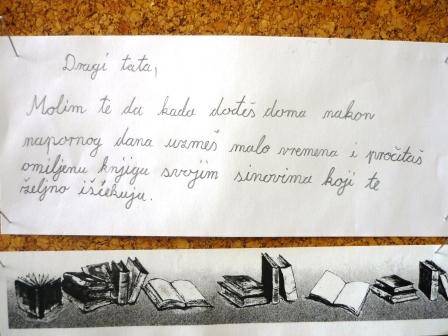 Dragi tata,
Molim te da kada dođeš doma nakon
napornog dana uzmeš malo vremena i pročitaš
omiljenu knjigu svojim sinovima koji te
željno iščekuju.